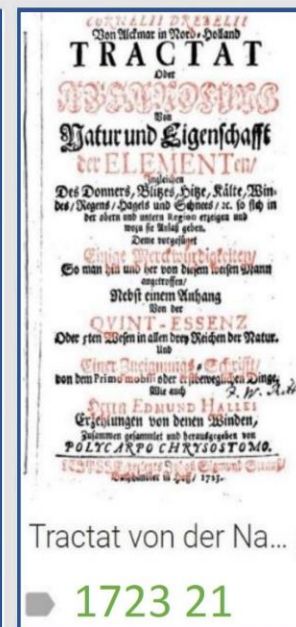 CORNELII DREBELII
Von Alckmar in Nord-Holland
TRACTAT
Oder
Von
Natur und Eigenschafft
der ELEMENTen/
Ingleichen
Des Donners, Blitzes, Hitze, Kälte, Win-
des/ Regens/ Hagels und Schnees/ ꝛc. so sich in
der obern und untern Region erzeigen und
wozu sie Anlaß geben.
Deme vorgefüget
Einige Merckwürdigkeiten/
So man hin und her von diesem weisen Mann
angetroffen/
Nebst einem Anhang
Von der
QVINT-ESSENZ
Oder 5ten Wesen in allen drey Reichen der Natur.
Und
Einer Zueignungs-Schrifft/
von dem Primo mobili oder erstbeweglichen Dinge,
Wie auch
Herrn EDMUND HALLEI
Erzehlungen von denen Winden,
Zusammen gesammlet und herausgegeben von
POLYCARPO CHRYSOSTOMO.
1723.
Tractat von der Na...
1723 21